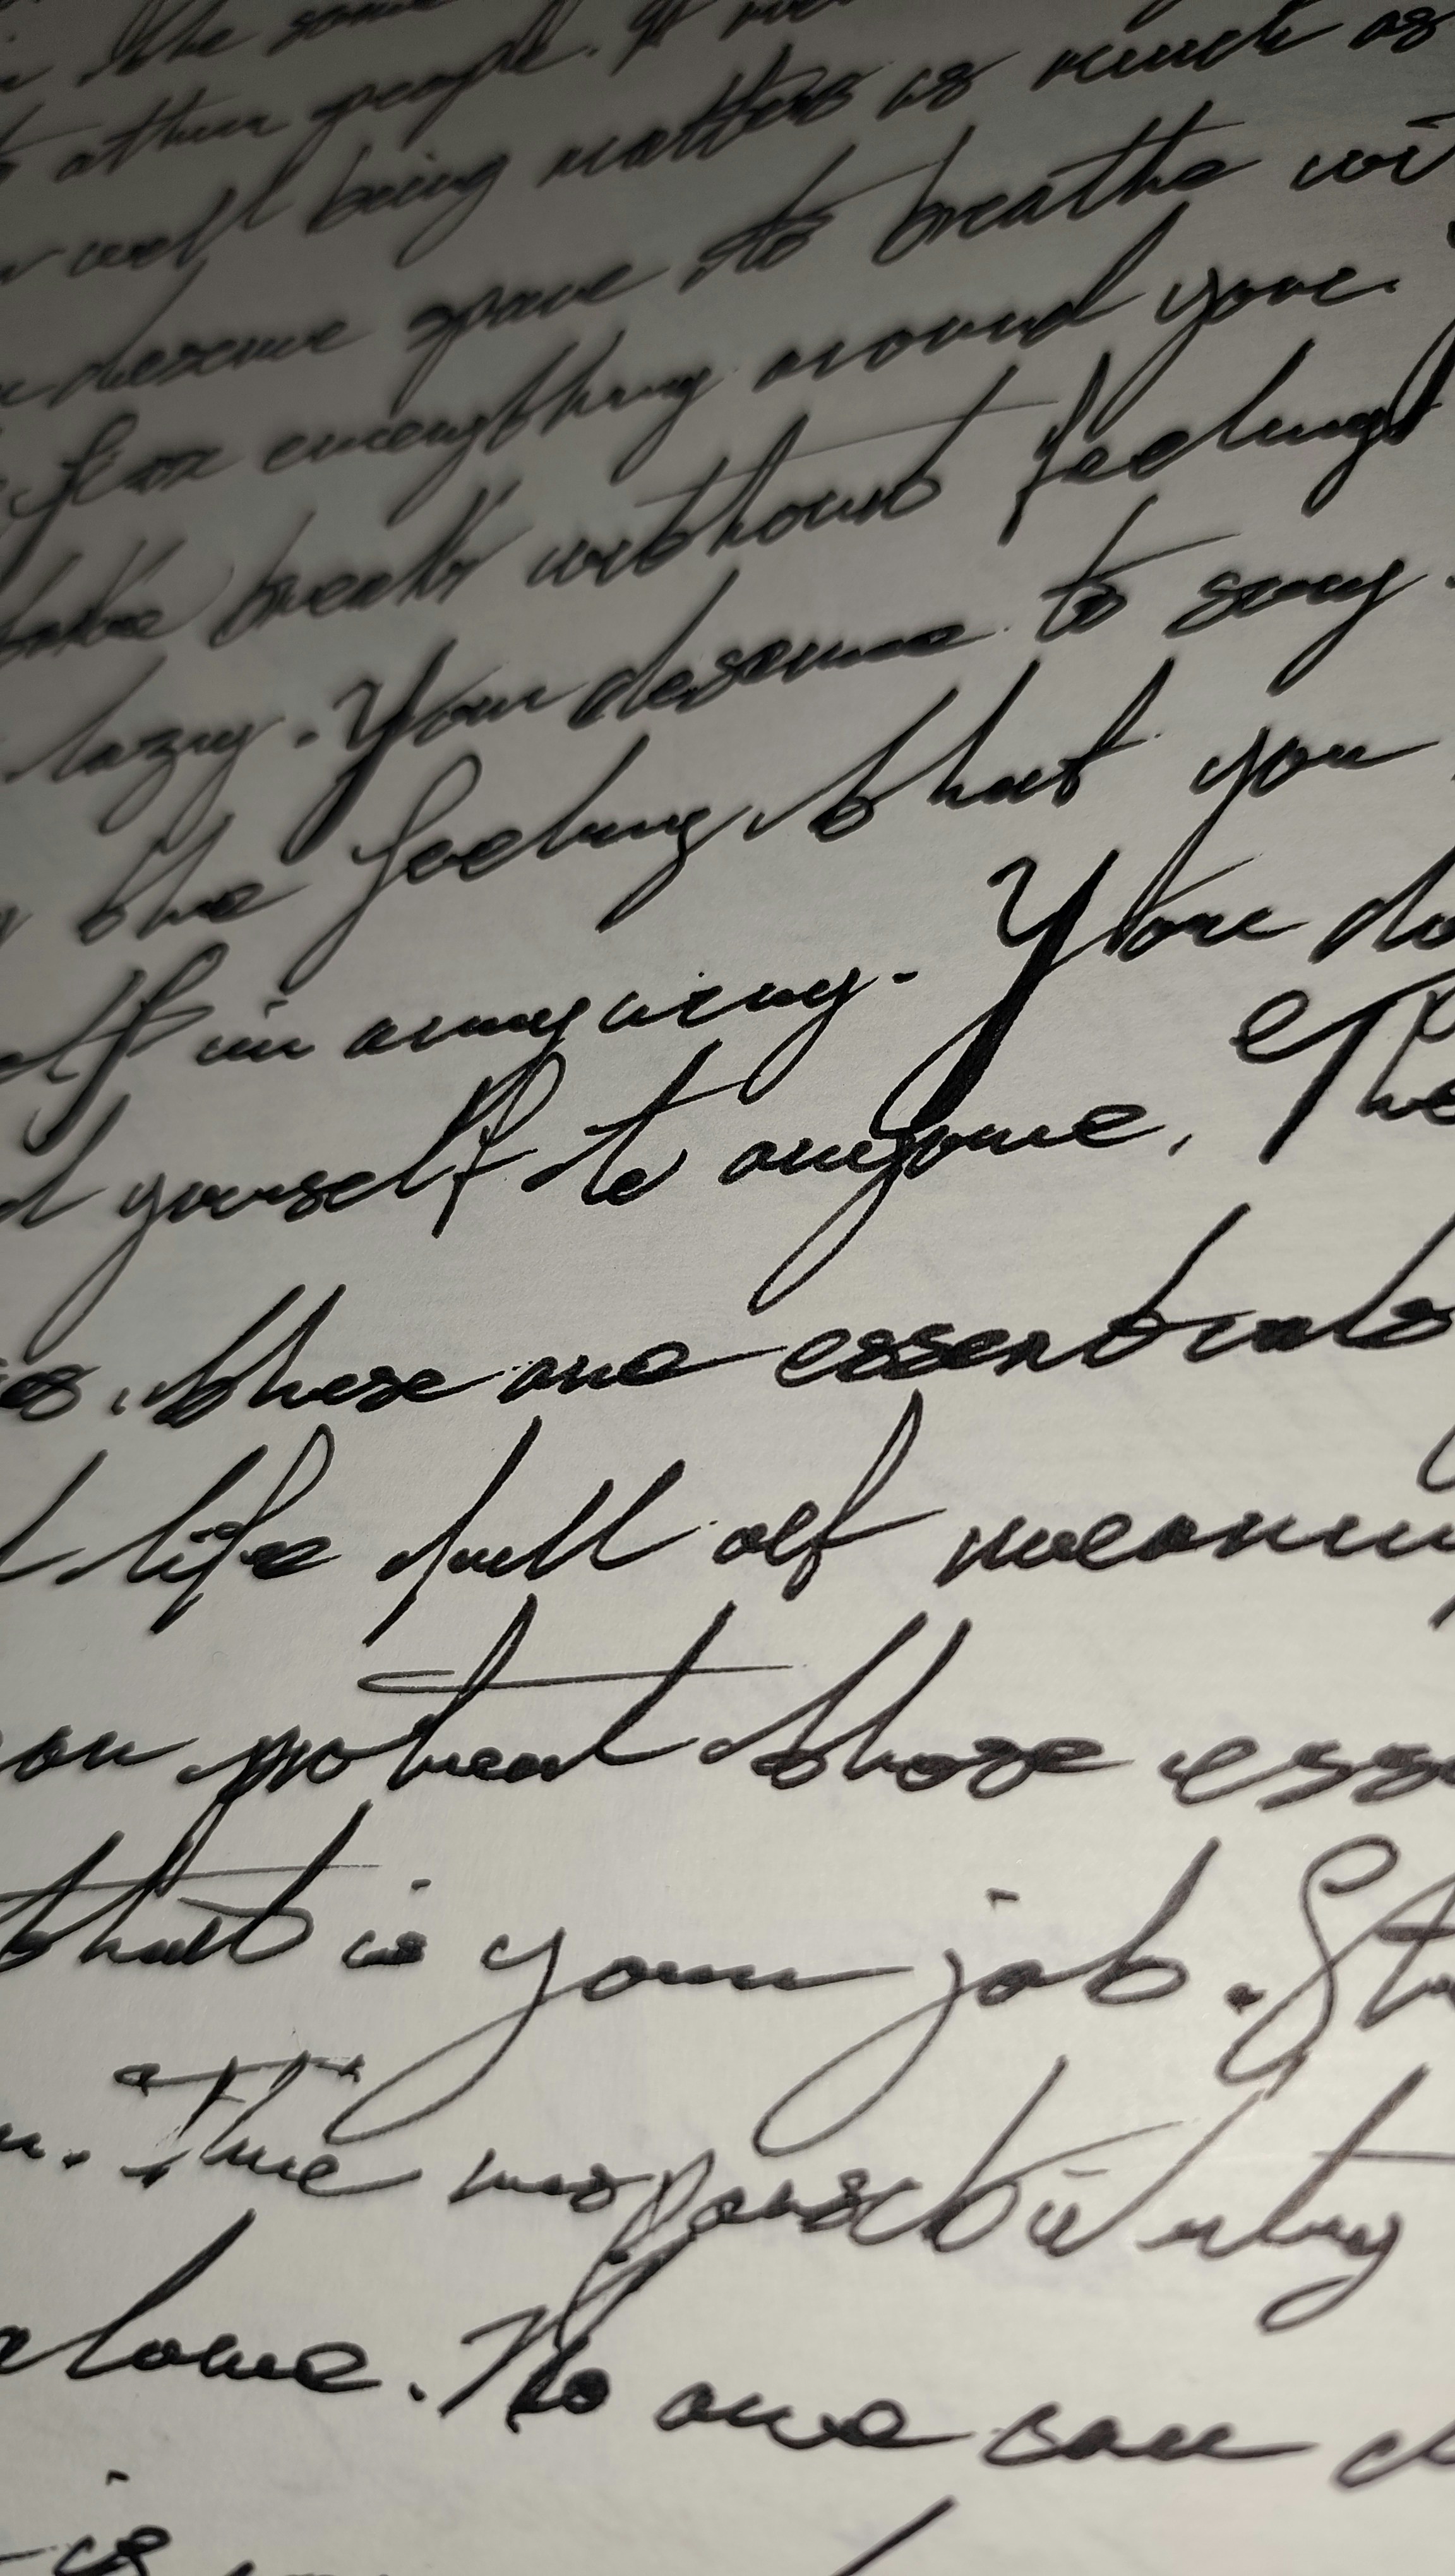 the same
other people. If
well being matters as much as
deserve space to breathe
for everything around you.
take breaks without feeling
lazy. You deserve to say
the feeling that you
in any way. You do
yourself to anyone. The
these are essentials
life full of meaning
protect those esse
that is your job. Sta
. The responsibility
alone. No one can
is